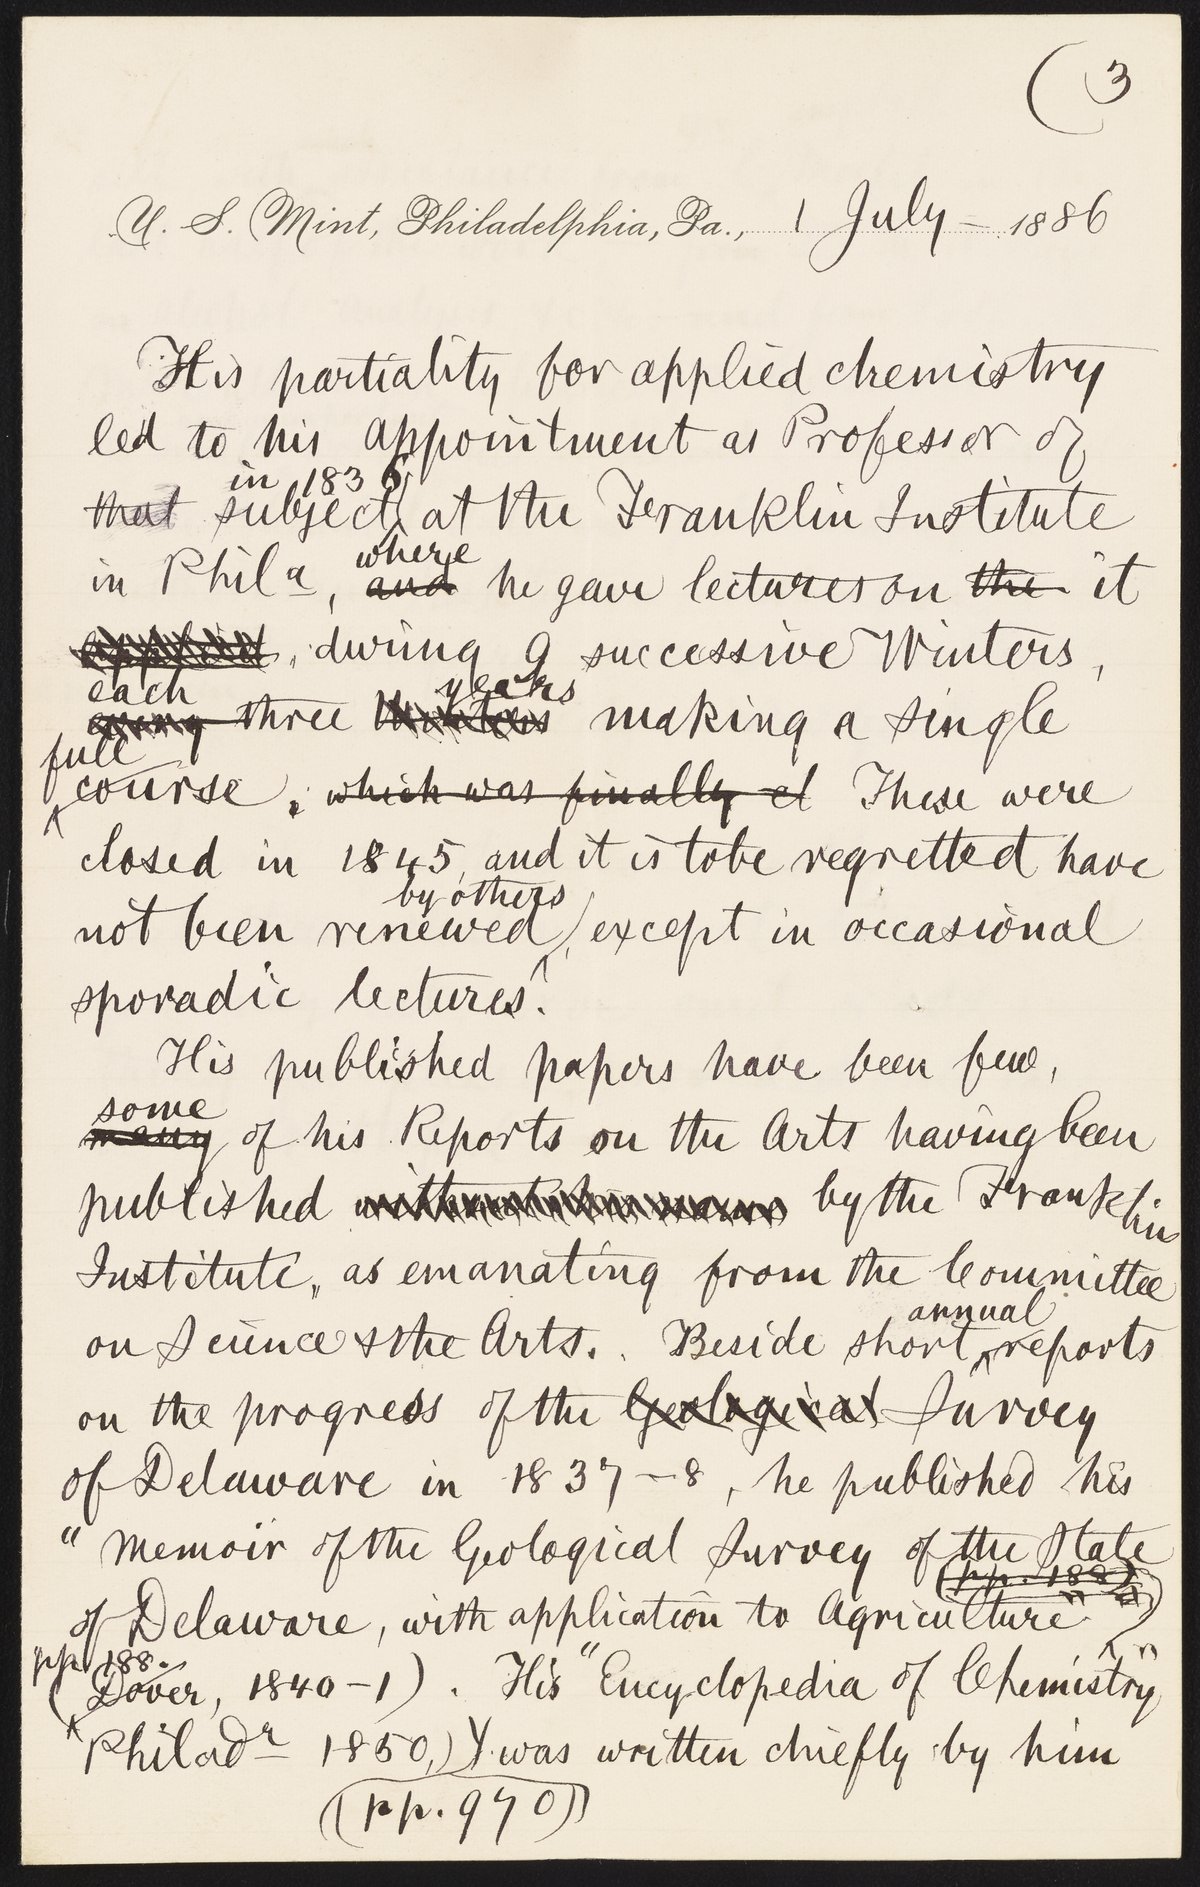 (3
U. S. Mint, Philadelphia, Pa., 1 July – 1886
His partiality for applied chemistry
led to his appointment as Professor of
in 1836
that subject, at the Franklin Institute
where
in Phila, and he gave lectures on the it
applied, during 9 successive Winters,
each years
every three Winters making a single
full
course, which was finally cl These were
closed in 1845, and it is to be regretted have
by others
not been renewed, except in occasional
sporadic lectures.
His published papers have been few,
some
many of his Reports on the Arts having been
published without his name by the Franklin
Institute, as emanating from the Committee
annual
on Science & the Arts. Beside short reports
on the progress of the Geological Survey
of Delaware in 1837–8, he published his
"Memoir of the Geological Survey of the State
(pp. 188)
of Delaware, with application to Agriculture"
pp. 188.
(Dover, 1840–1). His "Encyclopedia of Chemistry"
Philada 1850,) was written chiefly by him
(pp. 970)